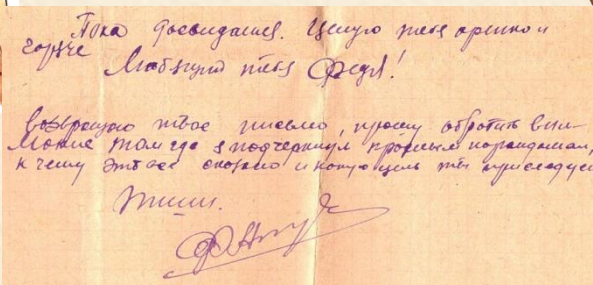 Пока досвидания. Целую тебя крепко и
горяче
Любящий тебя Федя!
Возвращаю твое письмо, прошу обратить вни-
мание там где я подчеркнул красным карандашом,
к чему это все сказано и какую цель ты преследуе
Пиши.